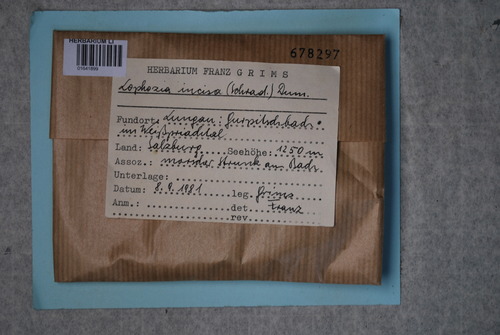 HERBARIUM LI
678297
HERBARIUM FRANZ GRIMS
Lophozia incisa (Schrad.) Dum.
Fundort: Lungau: Gurpitschbach
im Weißpriachtal
Land: Salzburg Seehöhe: 1250 m
Assoz.: morscher Strunk am Bach
Unterlage:
Datum: 8.9.1981 leg. Grims
Anm.: det. Franz
rev.